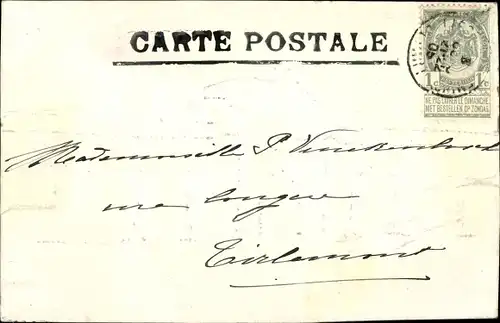 CARTE POSTALE
1c 1c
NE PAS LIVRER LE DIMANCHE
NIET BESTELLEN OP ZONDAG
Mademoiselle P. Vinckenbosch
rue longue
Tirlemont